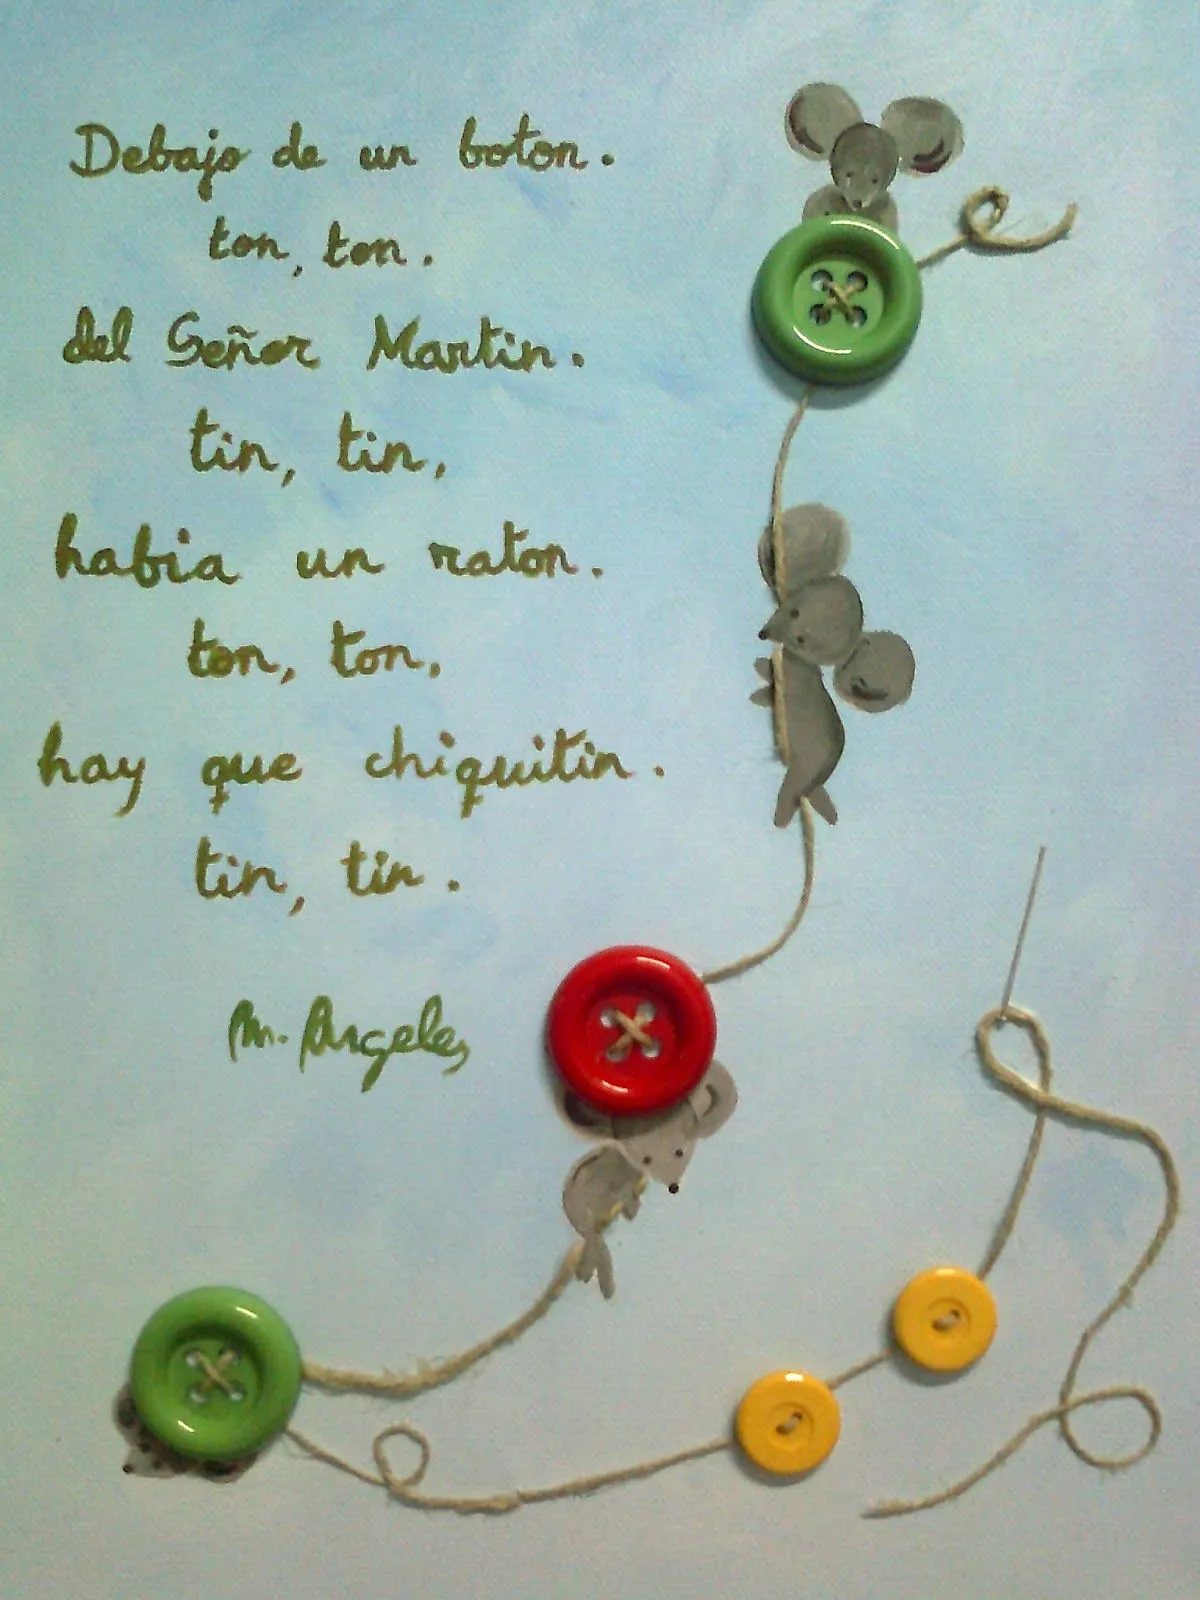 Debajo de un boton.
ton, ton.
del Señor Martin.
tin, tin,
habia un raton.
ton, ton,
hay que chiquitin.
tin, tin.
M. Angeles